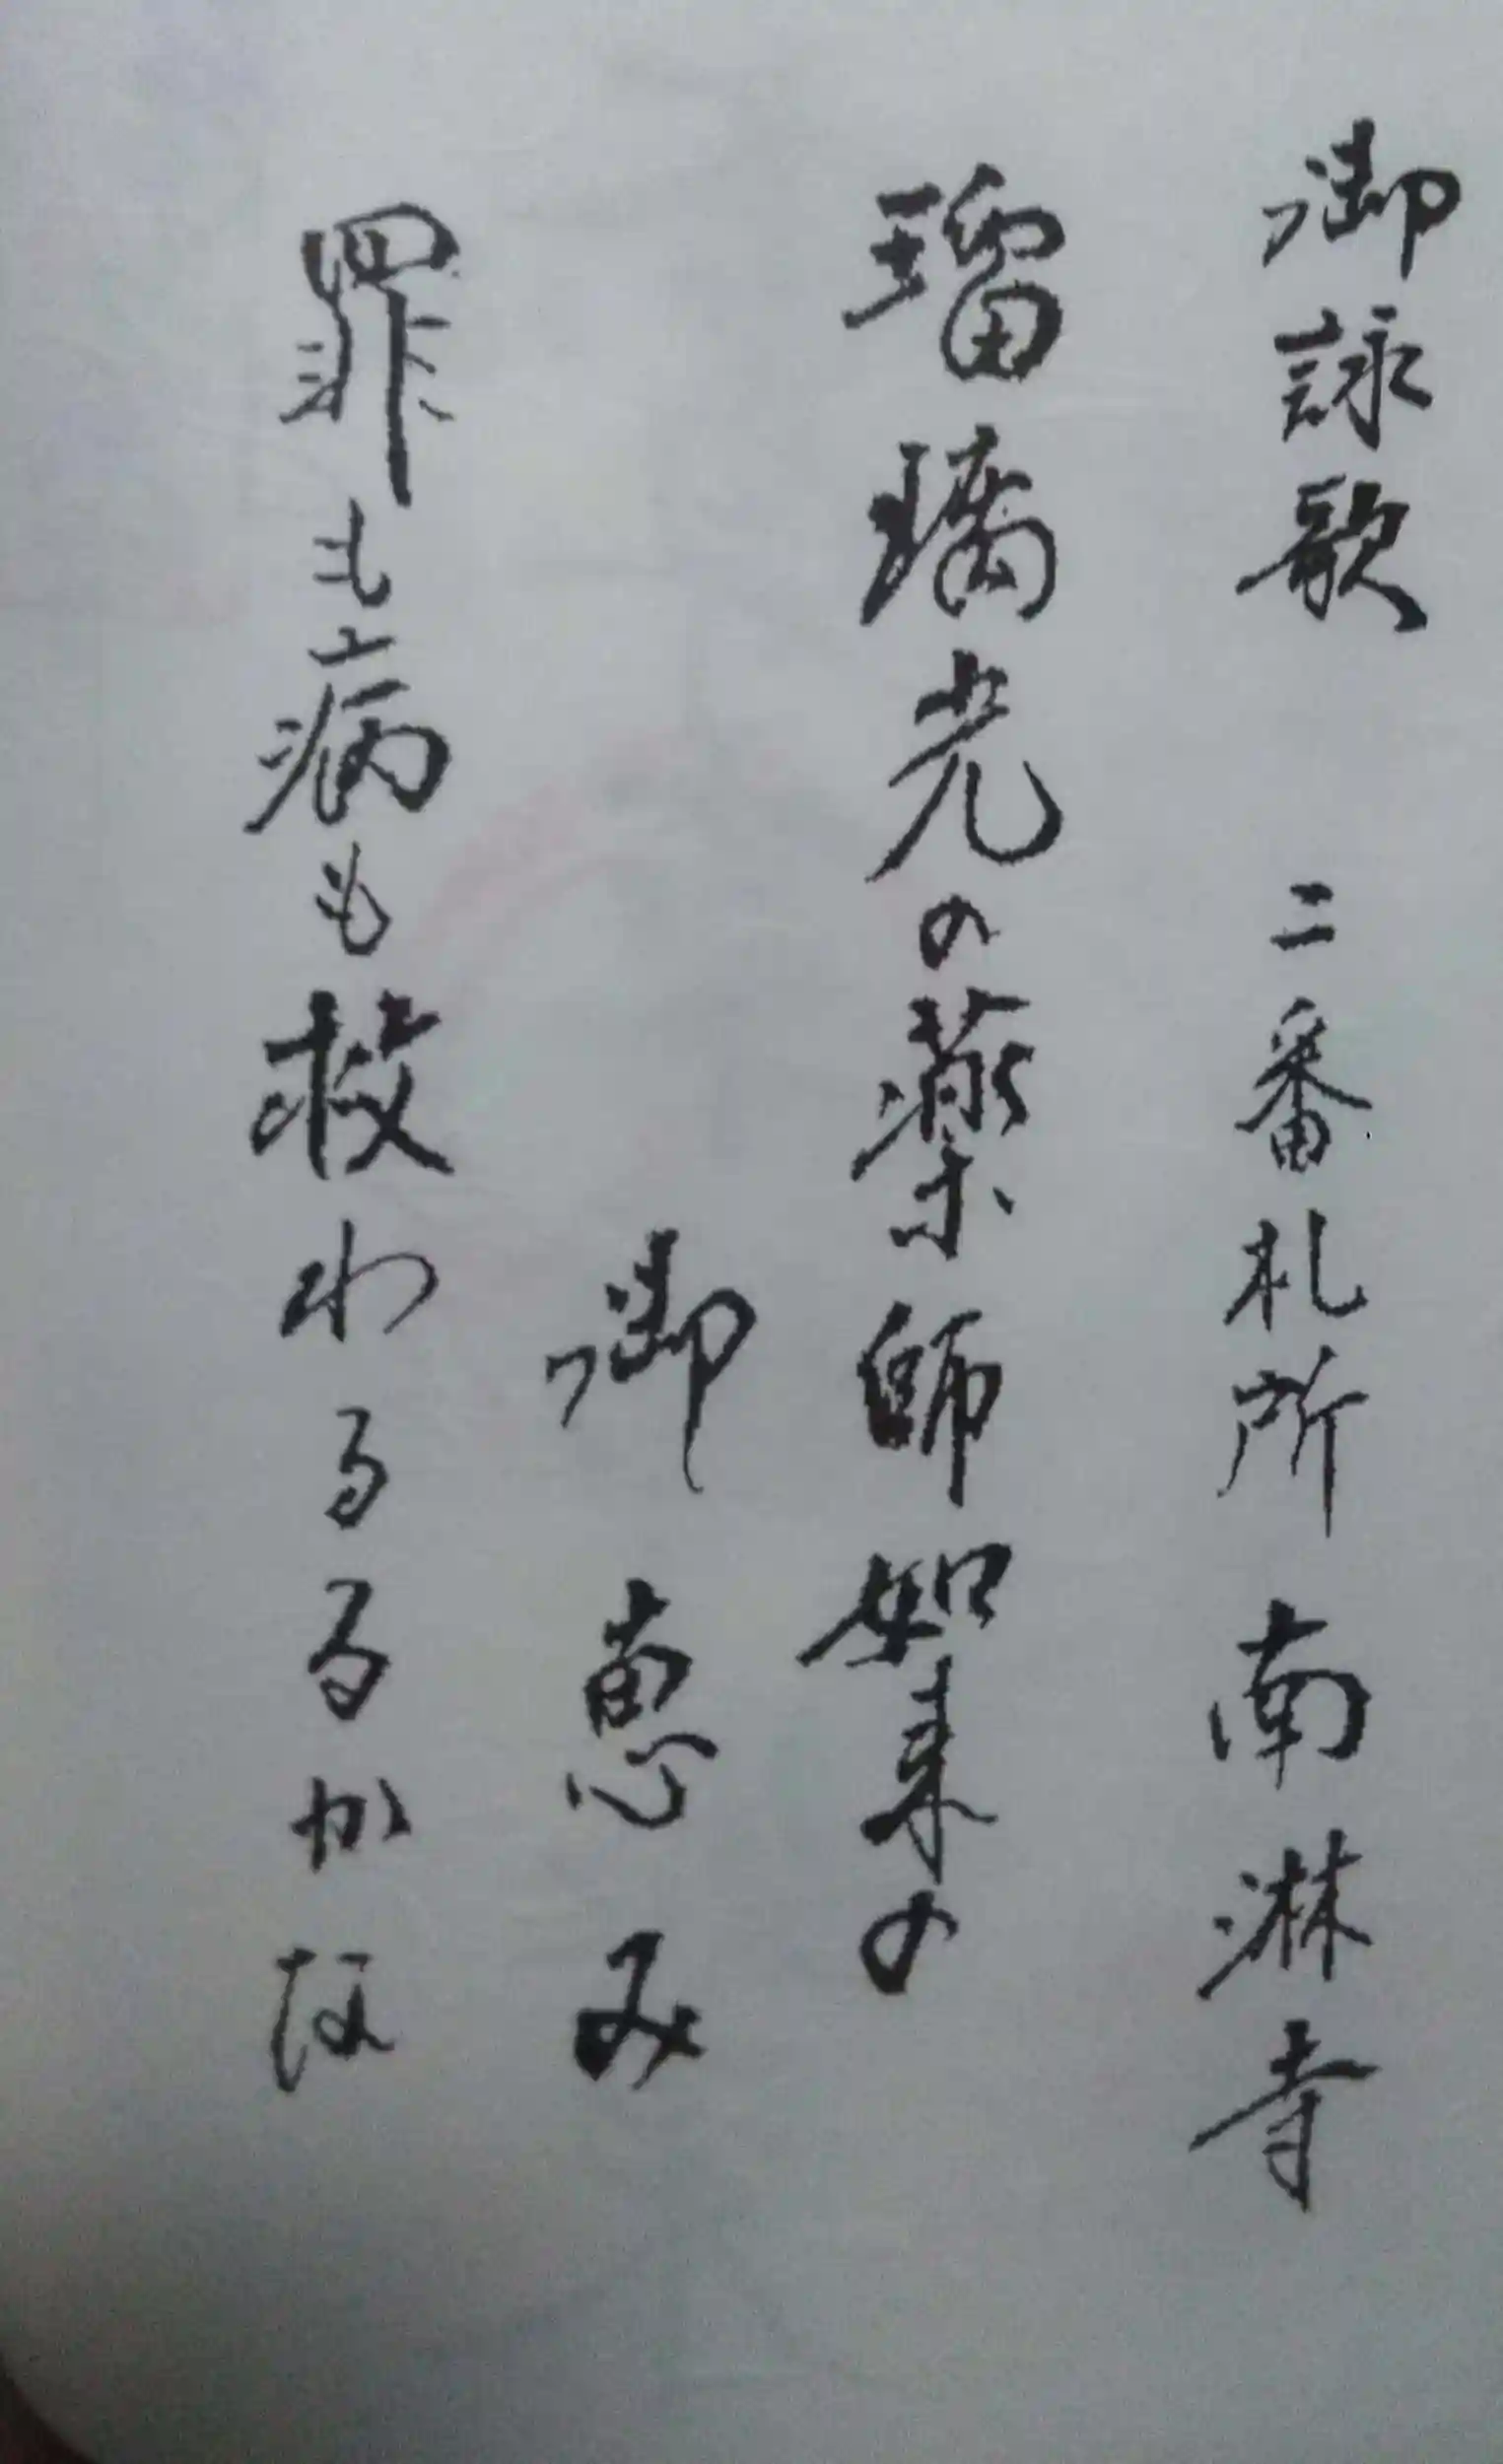 御詠歌 二番札所 南淋寺
瑠璃光の薬師如来の
御恵み
罪も病も救わるるかな